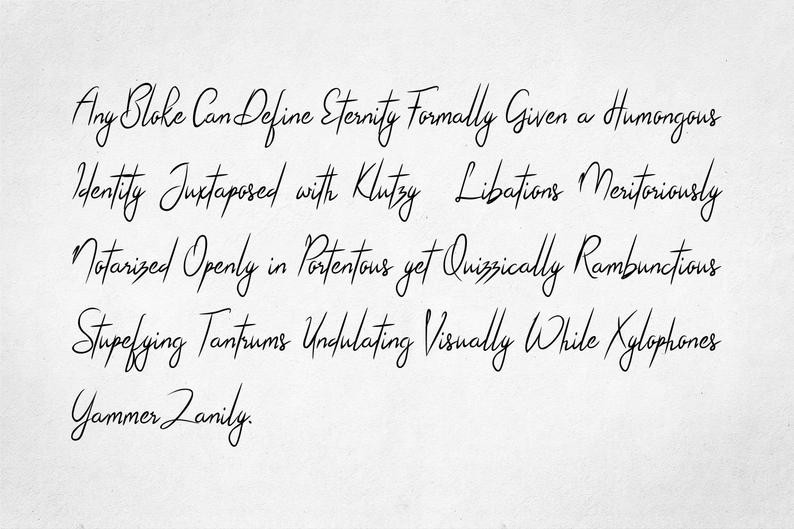 Any Bloke Can Define Eternity Formally Given a Humongous
Identity Juxtaposed with Klutzy Libations Meritoriously
Notarized Openly in Portentous yet Quizzically Rambunctious
Stupefying Tantrums Undulating Visually While Xylophones
Yammer Zanily.